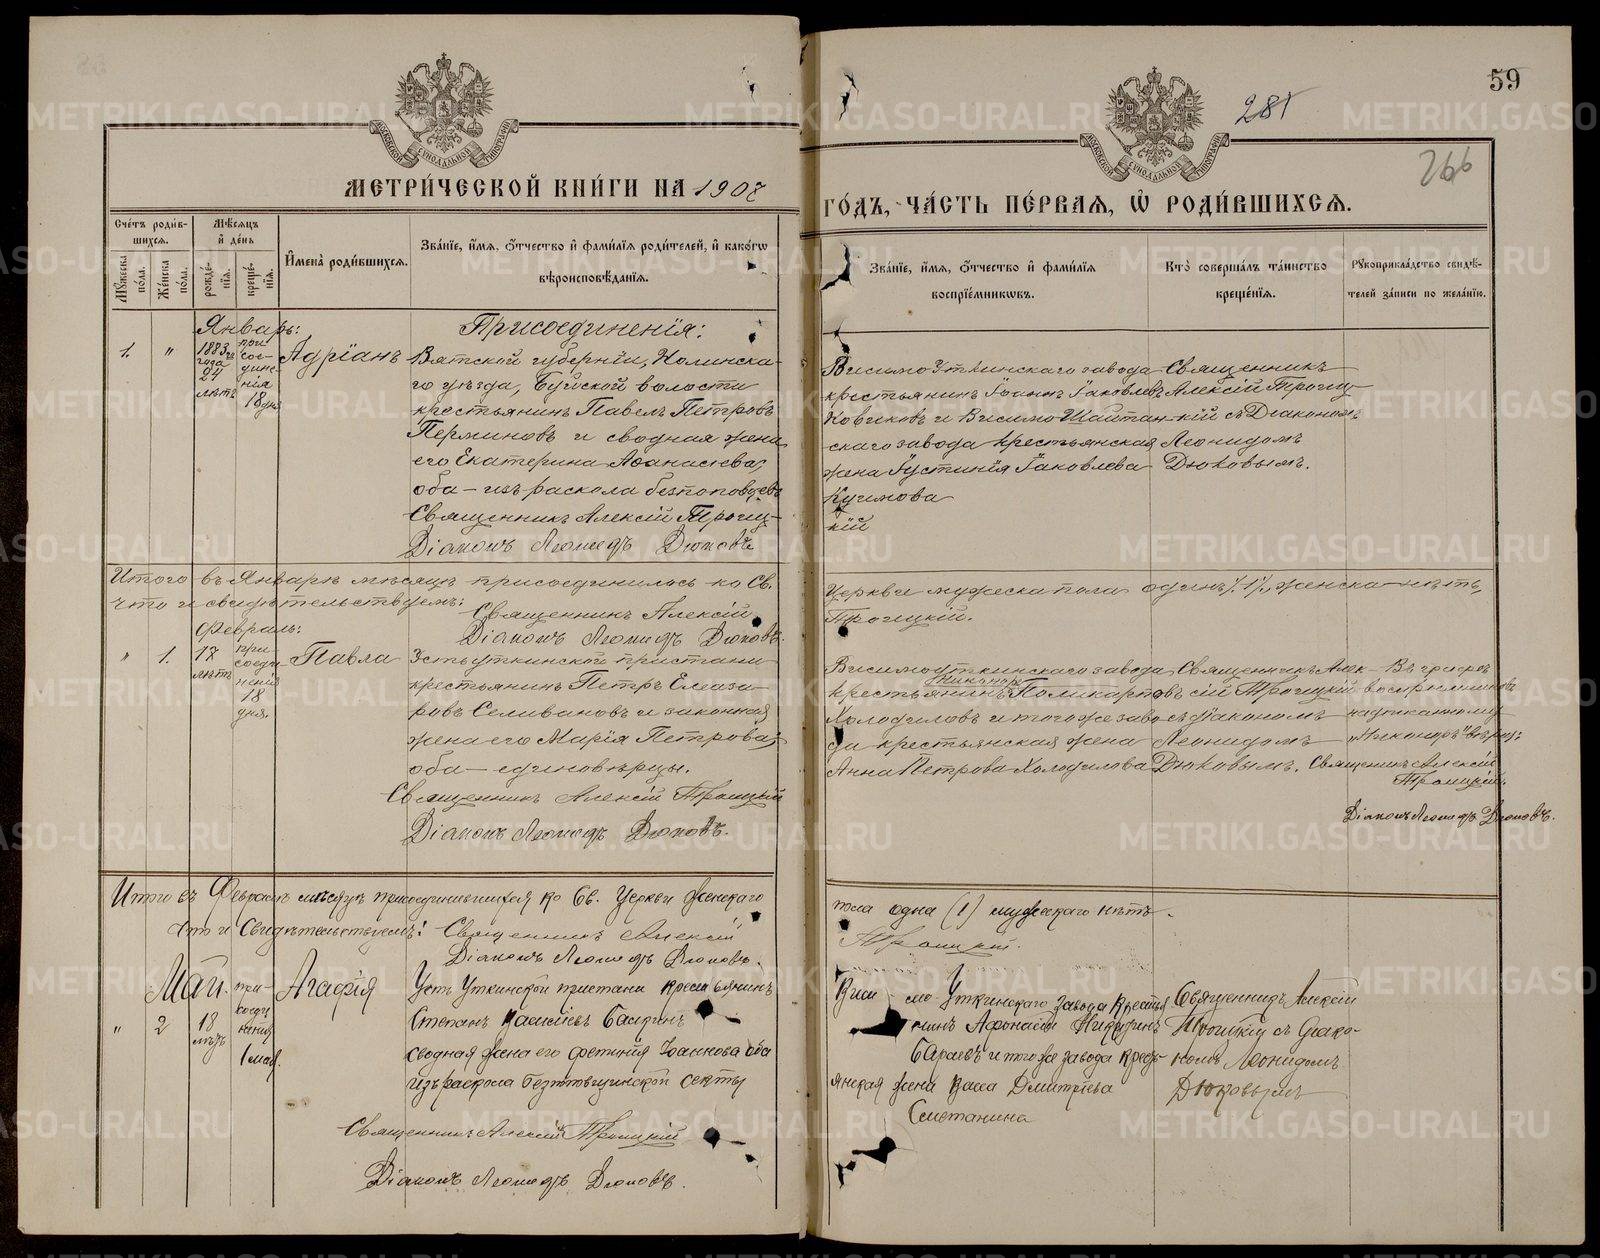 59
281
266
МОСКОВСКОЙ СѴНОДАЛЬНОЙ ТИПОГРАФІИ
МОСКОВСКОЙ СѴНОДАЛЬНОЙ ТИПОГРАФІИ
МЕТРИ́ЧЕСКОЙ КНИ́ГИ НА 1907
ГО́ДЪ, ЧА́СТЬ ПЕ́РВАЯ, Ѡ҆ РОДИ́ВШИХСЯ.
Сче́тъ роди́в-
шихся.
Мѣ́сяцъ
и҆ де́нь
Мꙋ́жеска по́ла.
Же́нска по́ла.
рожде́-
нїѧ.
креще́-
нїѧ.
И҆мена̀ роди́вшихся.
Зва́нїе, и҆́мѧ, ѻ҆́тчество и҆ фамѝлїѧ роди́телей, и҆ како́гѡ
вѣроисповѣ́данїѧ.
Зва́нїе, и҆́мѧ, ѻ҆́тчество и҆ фами́лїѧ
воспрїе́мникѡвъ.
Кто̀ соверша́лъ та́инство
креще́нїѧ.
Рꙋкоприкла́дство свидѣ́-
телей за́писи по жела́нїю.
Январь:
Присоединенія:
1. " 1883 го года 24 лѣтъ
присоединенія 18 дня
Адріанъ
Вятской губерніи, Нолинска-
го уѣзда, Буйской волости
крестьянинъ Павелъ Петровъ
Перминовъ и сводная жена
его Екатерина Аѳанасіева,
оба — изъ раскола безпоповцевъ
Священникъ Алексій Троиц-
Діаконъ Леонидъ Дюковъ
Висимо Уткинскаго завода
крестьянинъ Іоаннъ Іаковлевъ
Новиковъ и Висимо Шайтан-
скаго завода крестьянская
жена Іустинія Іаковлева
кій
Священникъ
Алексій Троиц-
кій съ Діакономъ
Леонидомъ
Дюковымъ.
Итого въ Январѣ мѣсяцѣ присоединилось ко Св.
Церкви мужеска пола одинъ /1/, женска — нѣтъ,
Что и свидѣтельствуемъ:
Священникъ Алексій
Троицкій.
Діаконъ Леонидъ Дюковъ.
Февраль:
" 1. 17 лѣтъ
присоединенія 18 дня.
Павла
Усть уткинской пристани
крестьянинъ Петръ Елеаза-
ровъ Селивановъ и законная
жена его Марія Петрова,
оба — единовѣрцы.
Священникъ Алексій Троицкій
Діаконъ Леонидъ Дюковъ.
Висимоуткинскаго завода
Никоноръ
крестьянинъ Поликарповъ
Холодиловъ и того же заво-
да крестьянская жена
Анна Петрова Холодилова
Священникъ Алек-
сій Троицкій
съ Діакономъ
Леонидомъ
Дюковымъ.
Въ графѣ
воспріемниковъ
надписанному
"Никоноръ" вѣрить:
Священникъ Алексій
Троицкій.
Діаконъ Леонидъ Дюковъ.
Итого въ Февралѣ мѣсяцѣ присоединившихся ко Св. Церкви женскаго
пола одна (1) мужескаго нѣтъ.
Что и Свидѣтельствуемъ: Священникъ Алексій
Троицкій.
Діаконъ Леонидъ Дюковъ.
Май.
" 2 18 лѣтъ
присоединенія 1 мая.
Агафія
Усть Уткинской пристани крестьянинъ
Степанъ Василіевъ Баскинъ
сводная жена его Фетинія Іоаннова оба
изъ раскола безпоповщинской секты
Священникъ Алексій Троицкій
Діаконъ Леонидъ Дюковъ.
Виси - мо Уткинскаго завода крестья
нинъ Афонасій
и того же завода крест-
янская жена Васса Дмитріева
Сметанина
Священникъ Алексій
Троицкій съ Діако-
номъ Леонидомъ
Дюковымъ
METRIKI.GASO-URAL.RU